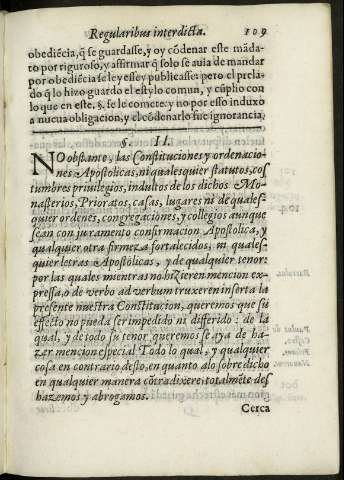 Regularibus interdicta. 109
obediẽcia, q̃ se guardasse, y oy cõdenar este mãda-
to por riguroso, y affirmar q̃ solo se auia de mandar
por obediẽcia se leyesse y publicasse: pero el prela-
do q̃ lo hizo guardo el estylo comun, y cũplio con
lo que en este. §. se le comete: y no por esso induxo
a nueua obligacion, y el cõdenarlo fue ignorancia,
§. II.
NO obstante, las Constituciones y ordenacio-
nes Apostolicas, ni qualesquier statutos, cos
tumbres priuilegios, indultos de los dichos Mo-
nasterios, Prioratos, casas, lugares ni de quales-
quier ordenes, congregaciones, y collegios aunque
sean con juramento confirmacion Apostolica, y
qualquier otra firmeza fortalecidos, ni quales-
quier letras Apostolicas, y de qualquier tenor:
por las quales mientras no hizieren mencion ex-
pressa, o de verbo ad verbum truxeren inserta la
presente nuestra Constitucion, queremos que su
effecto no pueda ser impedido ni differido: de la
qual, y de todo su tenor queremos se aya de ha-
zer mencion especial Todo lo qual, y qualquier
cosa en contrario desto, en quanto alo sobre dicho
en qualquier manera cõtradixere: totalmẽte des
hazemos y abrogamos.
Cerca